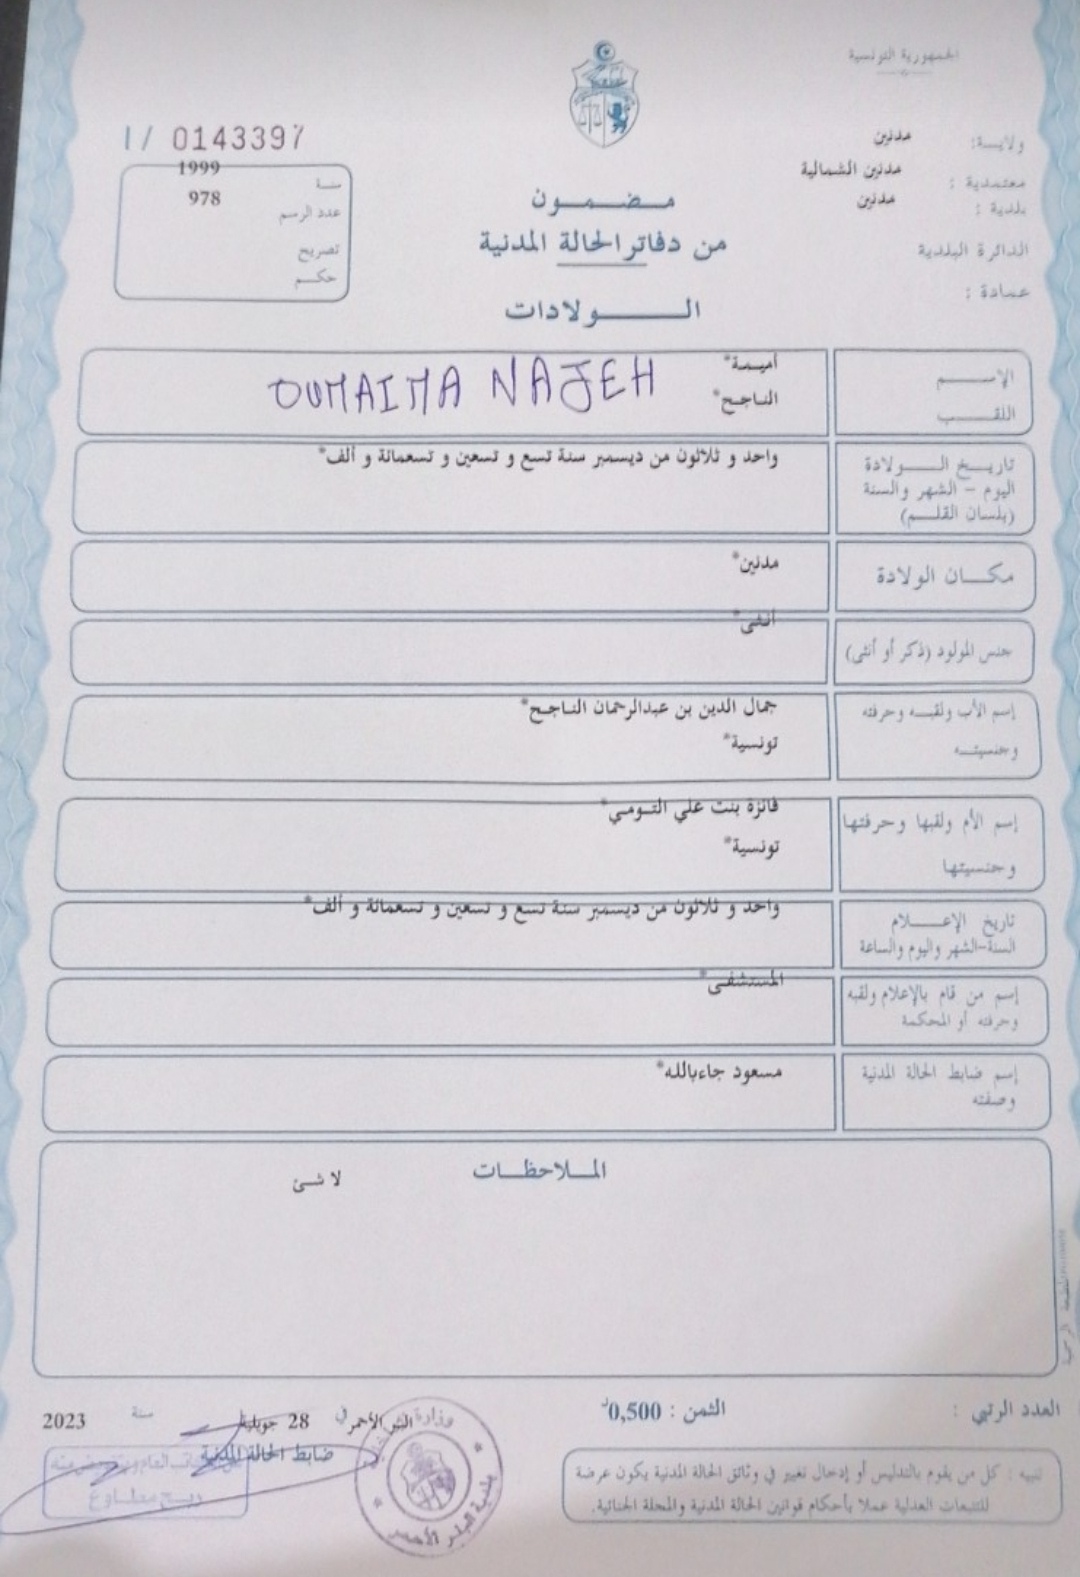 الجمهورية التونسية
I/ 0143397
ولايــة: مدنين
معتمدية : مدنين الشمالية
بلدية : مدنين
الدائرة البلدية
عمادة :
سنة 1999
عدد الرسم 978
تصريح
حكــم
مـضـمــون
من دفاتر الحالة المدنية
الــــولادات
الإســــم أميمـة*
اللقــــب الناجح*
OUMAIMA NAJEH
تاريــخ الــــولادة واحد و ثلاثون من ديسمبر سنة تسع و تسعين و تسعمائة و ألف*
اليوم – الشهر والسنة
(بلسان القلــم)
مكــان الولادة مدنين*
جنس المولود (ذكر أو أنثى) أنثى*
إسم الأب ولقبـه وحرفته جمال الدين بن عبدالرحمان الناجح*
وجنسيتــه تونسية*
إسم الأم ولقبها وحرفتها فائزة بنت علي التومي*
وجنسيتها تونسية*
تاريخ الإعـــلام واحد و ثلاثون من ديسمبر سنة تسع و تسعين و تسعمائة و ألف*
السنة-الشهر واليوم والساعة
إسم من قام بالإعلام ولقبه المستشفى*
وحرفته أو المحكمة
إسم ضابط الحالة المدنية مسعود جاءبالله*
وصفته
المــلاحظــات
لا شئ
العدد الرتبي :
الثمن : 0,500د
البئر الأحمر في 28 جويلية سنة 2023
ضابط الحالة المدنية
تنبيه : كل من يقوم بالتدليس أو إدخال تغيير في وثائق الحالة المدنية يكون عرضة
للتتبعات العدلية عملا بأحكام قوانين الحالة المدنية والمجلة الجنائية.
بلدية البئر الأحمر